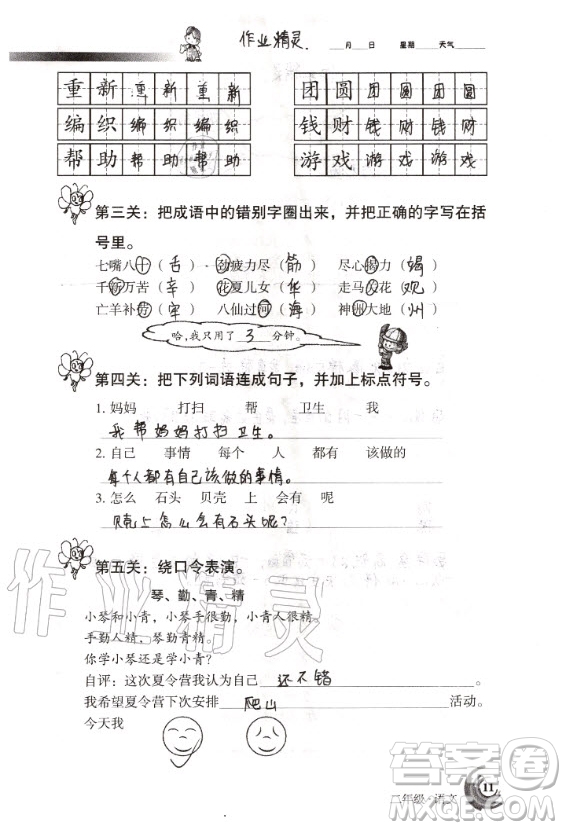 作业精灵. 月 日 星期 天气
重新重新重新 团圆团圆团圆
编织编织编织 钱财钱财钱财
帮助帮助帮助 游戏游戏游戏
第三关：把成语中的错别字圈出来，并把正确的字写在括
号里。
七嘴八十（舌） 劲疲力尽（筋） 尽心揭力（竭）
千新万苦（辛） 花夏儿女（华） 走马欢花（观）
亡羊补劳（牢） 八仙过河（海） 神洲大地（州）
哈，我只用了 3 分钟。
第四关：把下列词语连成句子，并加上标点符号。
1. 妈妈 打扫 帮 卫生 我
我帮妈妈打扫卫生。
2. 自己 事情 每个 人 都有 该做的
每个人都有自己该做的事情。
3. 怎么 石头 贝壳 上 会有 呢
贝壳上怎么会有石头呢？
第五关：绕口令表演。
琴、勤、青、精
小琴和小青，小琴手很勤，小青人很精。
手勤人精，琴勤青精。
你学小琴还是学小青？
自评：这次夏令营我认为自己 还不错
我希望夏令营下次安排 爬山 活动。
今天我
作业精灵
作业答案
11
二年级·语文